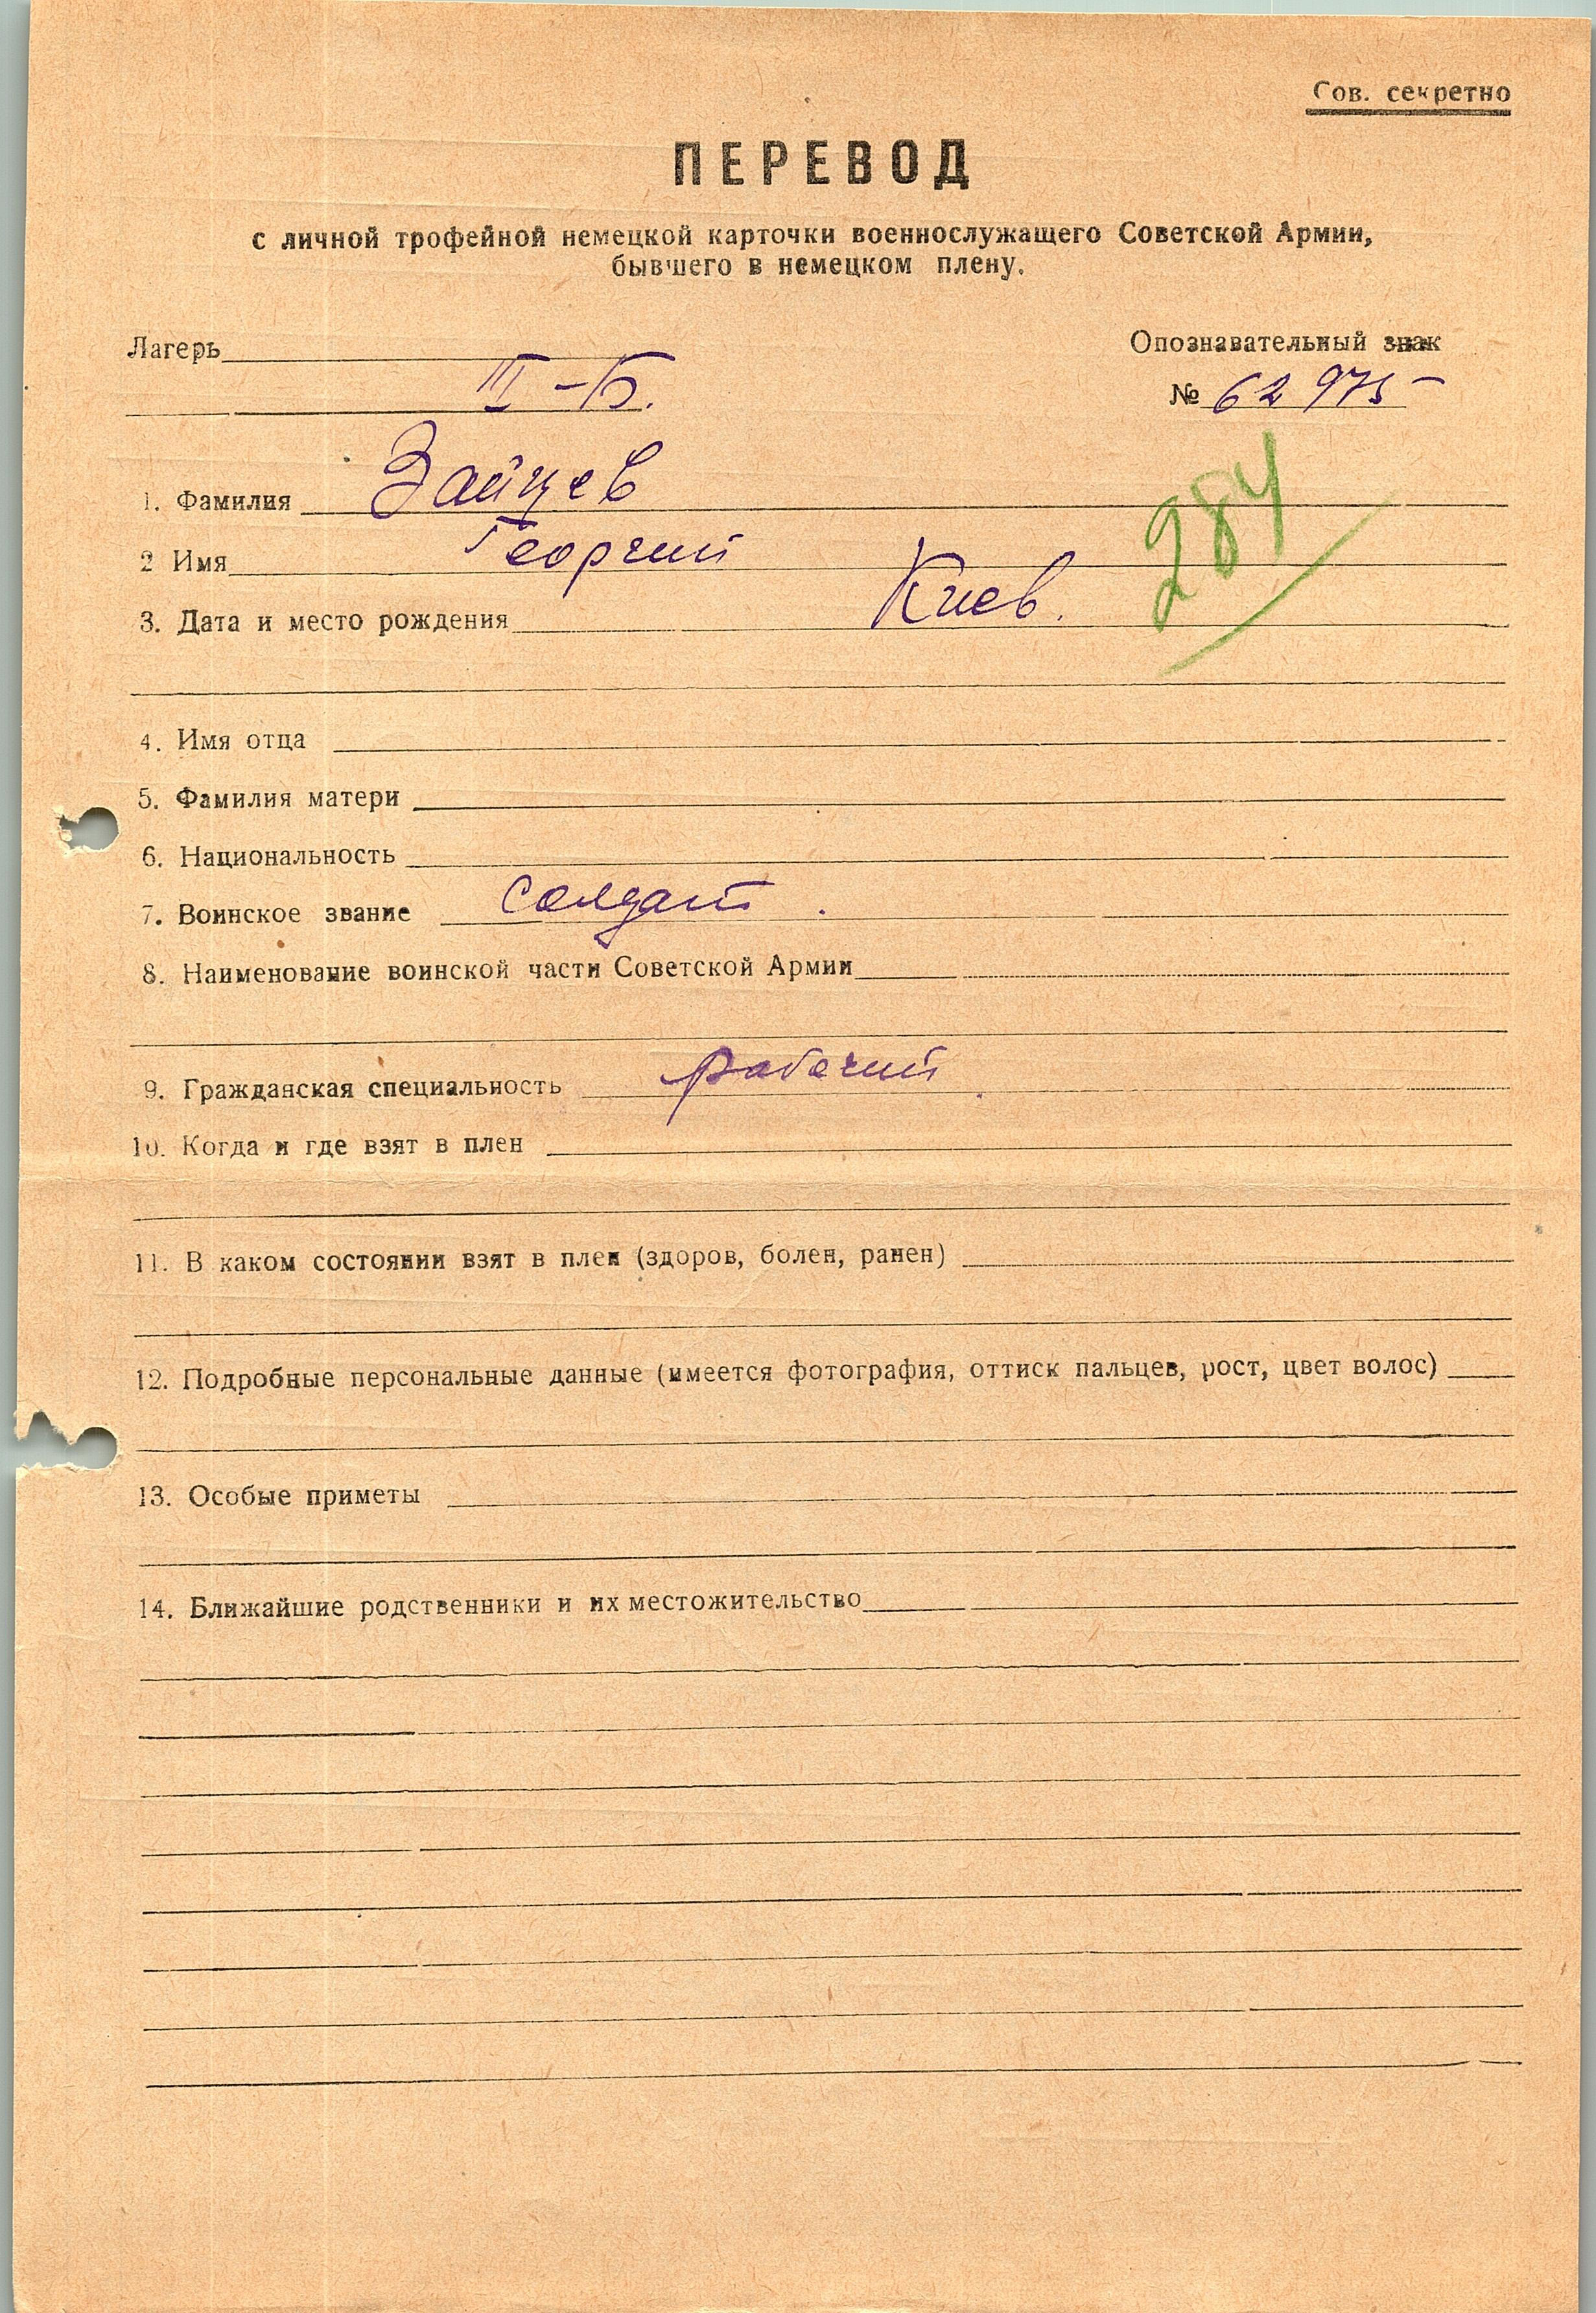 Сов. секретно
ПЕРЕВОД
с личной трофейной немецкой карточки военнослужащего Советской Армии,
бывшего в немецком плену.
Лагерь
Опознавательный знак
III-Б.
№ 62975
1. Фамилия Зайцев
2 Имя Георгий
284
3. Дата и место рождения Киев.
4. Имя отца
5. Фамилия матери
6. Национальность
7. Воинское звание солдат.
8. Наименование воинской части Советской Армии
9. Гражданская специальность рабочий.
10. Когда и где взят в плен
11. В каком состоянии взят в плен (здоров, болен, ранен)
12. Подробные персональные данные (имеется фотография, оттиск пальцев, рост, цвет волос)
13. Особые приметы
14. Ближайшие родственники и их местожительство